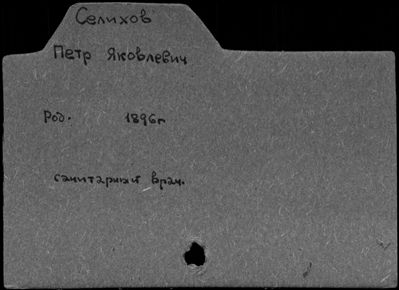 Селихов
Петр Яковлевич
Род. 1896г
санитарный врач.